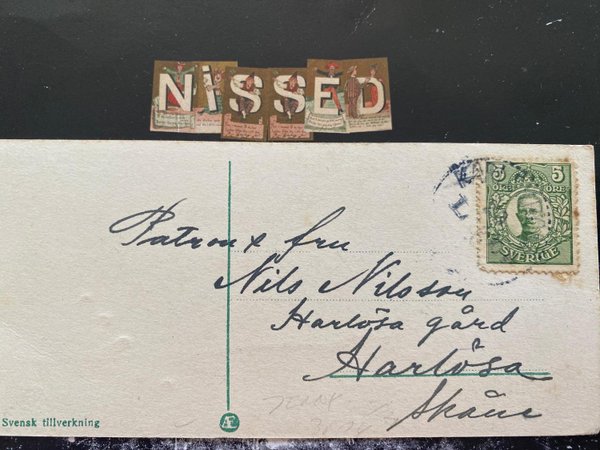 NiSSED
5 5
ÖRE ÖRE
SVERIGE
Patron x fru
Nils Nilsson
Harlösa gård
Harlösa
Skåne
Svensk tillverkning
Æ